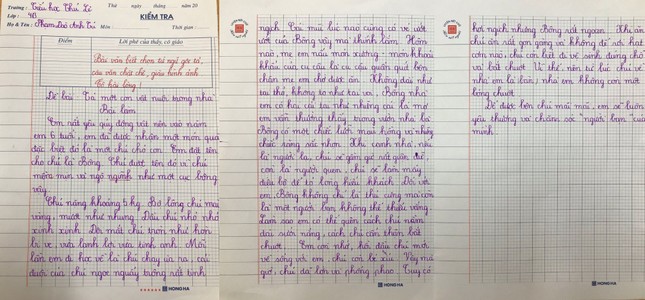 Trường : Tiểu học Thư Lễ
Thứ ngày tháng năm 20
Lớp : 4B
KIỂM TRA
Họ & Tên : Phạm Bảo Anh Trí
Môn :
Thời gian :
Điểm
Lời phê của thầy, cô giáo
Bài viết biết chọn từ ngữ gợi tả,
câu văn chặt chẽ, giàu hình ảnh
Đề bài: Tả một con vật nuôi trong nhà
Bài làm
Em rất yêu quý động vật nên vào năm
em 6 tuổi, em đã được nhận một món quà
đặc biệt đó là một chú chó con. Em đặt tên
cho chú là Bông. Chú được tên đó vì chú
mềm mịn và ngộ nghĩnh như một cục bông
vậy.
Chú nặng khoảng 5 kg. Bộ lông chú màu
vàng, mượt như nhung. Đầu chú nho nhỏ
xinh xinh. Đôi mắt chú tròn như hòn
bi ve, vừa lanh lợi vừa tinh anh. Mỗi
lần em đi học về là chú chạy ùa ra, cái
đuôi của chú ngoe nguẩy trông rất tinh
HONG HA
nghịch. Cái mũi lúc nào cũng có vẻ ươn
ướt của Bông vậy mà thính lắm. Hôm
nào, mẹ em nấu món xương - món khoái
khẩu của cu cậu là cu cậu quấn quá bên
chân mẹ em chờ được ăn. Không dài như
tai thỏ, không to như tai voi, Bông nhà
em có hai cái tai như những cái lá mơ
em vẫn thường thấy trong vườn nhà bà.
Bông có một chiếc lưỡi màu hồng và những
chiếc răng sắc nhọn. Khi canh nhà, nếu
là người lạ, chú sẽ gầm gừ rất giận dữ,
còn là người quen, chú sẽ làm mấy
điệu bộ để tỏ lòng hiếu khách. Đối với
em, Bông không chỉ là thú cưng mà còn
là một người bạn không thể thiếu vắng.
Làm sao em có thể quên cách chú nằm
dài sưởi nắng, cách chú cẩn thận bắt
chuột. Em còn nhớ, hồi đầu chú mới
về sống với em, chú còn bé xíu. Vậy mà
giờ, chú đã lớn và phổng phao. Tuy có
HONG HA
hơi nghịch nhưng Bông rất ngoan. Khi ăn
chú ăn rất gọn gàng và không để rơi hạt
cơm nào, chú còn biết đi vệ sinh đúng chỗ
và bắt chuột. Vì thế, nên từ lúc chú về
nhà em là bạn, nhà em không còn một
bóng chuột.
Để được bên chú mãi mãi, em sẽ luôn
yêu thương và chăm sóc "người" bạn của
mình.
HONG HA